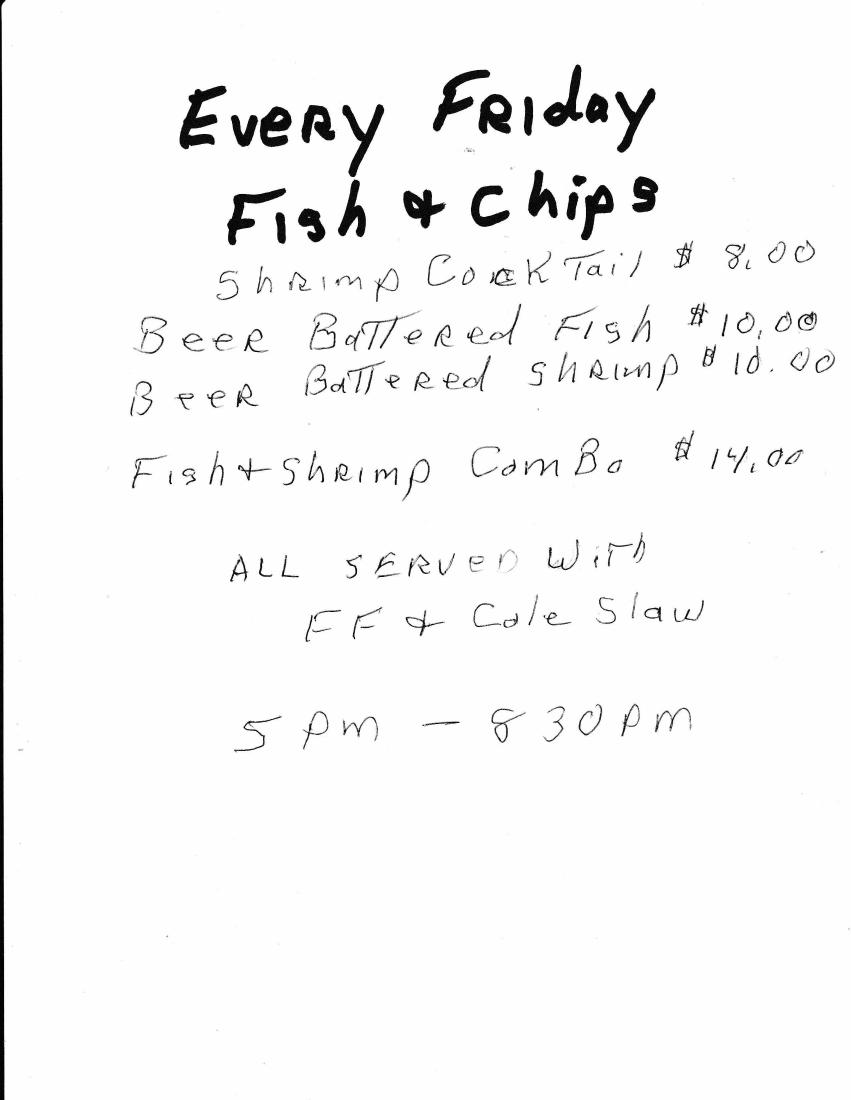 Every Friday
Fish & Chips
Shrimp Cocktail $ 8.00
Beer Battered Fish $10.00
Beer Battered Shrimp $10.00
Fish + Shrimp Combo $ 14.00
ALL SERVED With
FF & Cole Slaw
5 pm - 830 pm